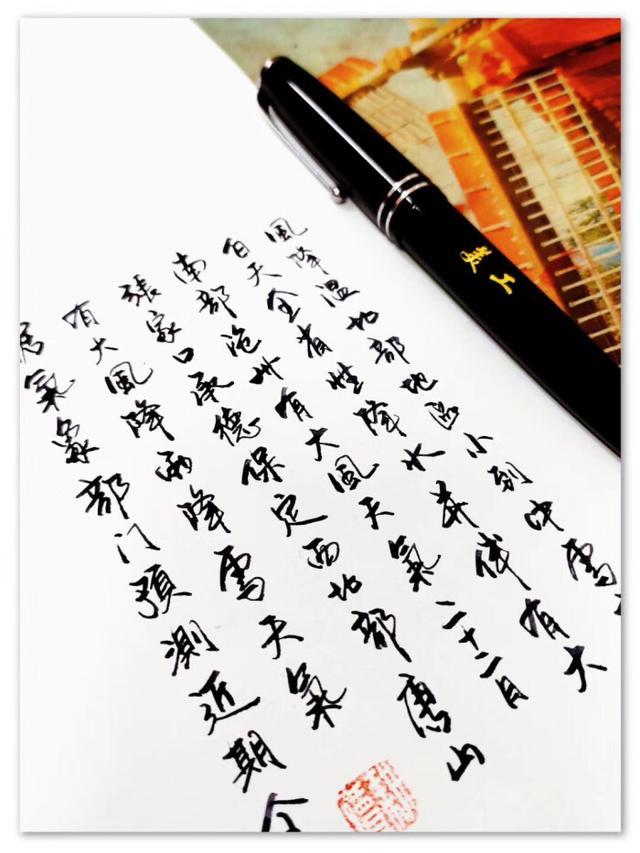 氣象部门預測近期
有大風降雨降雪天氣
張家口承德保定西北部唐山
南部滄州有大風天氣二十二日
白天全省性降水并伴有大
風降溫北部地區小到中雪
美工